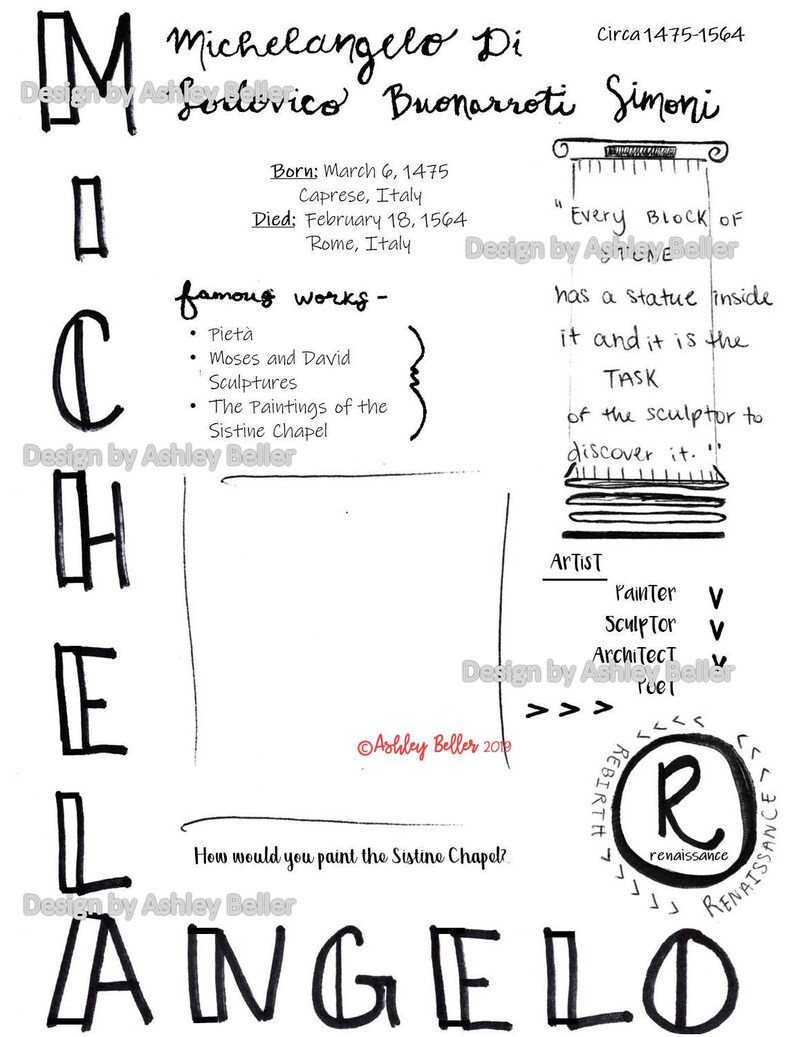 MICHELANGELO
Michelangelo Di
Lodovico Buonarroti Simoni
Circa 1475-1564
Design by Ashley Beller
Born: March 6, 1475
Caprese, Italy
Died: February 18, 1564
Rome, Italy
Design by Ashley Beller
"Every BLOCK OF
STONE
has a statue inside
it and it is the
TASK
of the sculptor to
discover it."
famous works-
• Pietà
• Moses and David
Sculptures
• The Paintings of the
Sistine Chapel
Design by Ashley Beller
Artist
Painter
Sculptor
Architect
Design by Ashley Beller
Poet
> > >
©Ashley Beller 2019
REBIRTH
R
renaissance
RENAISSANCE
How would you paint the Sistine Chapel?
Design by Ashley Beller